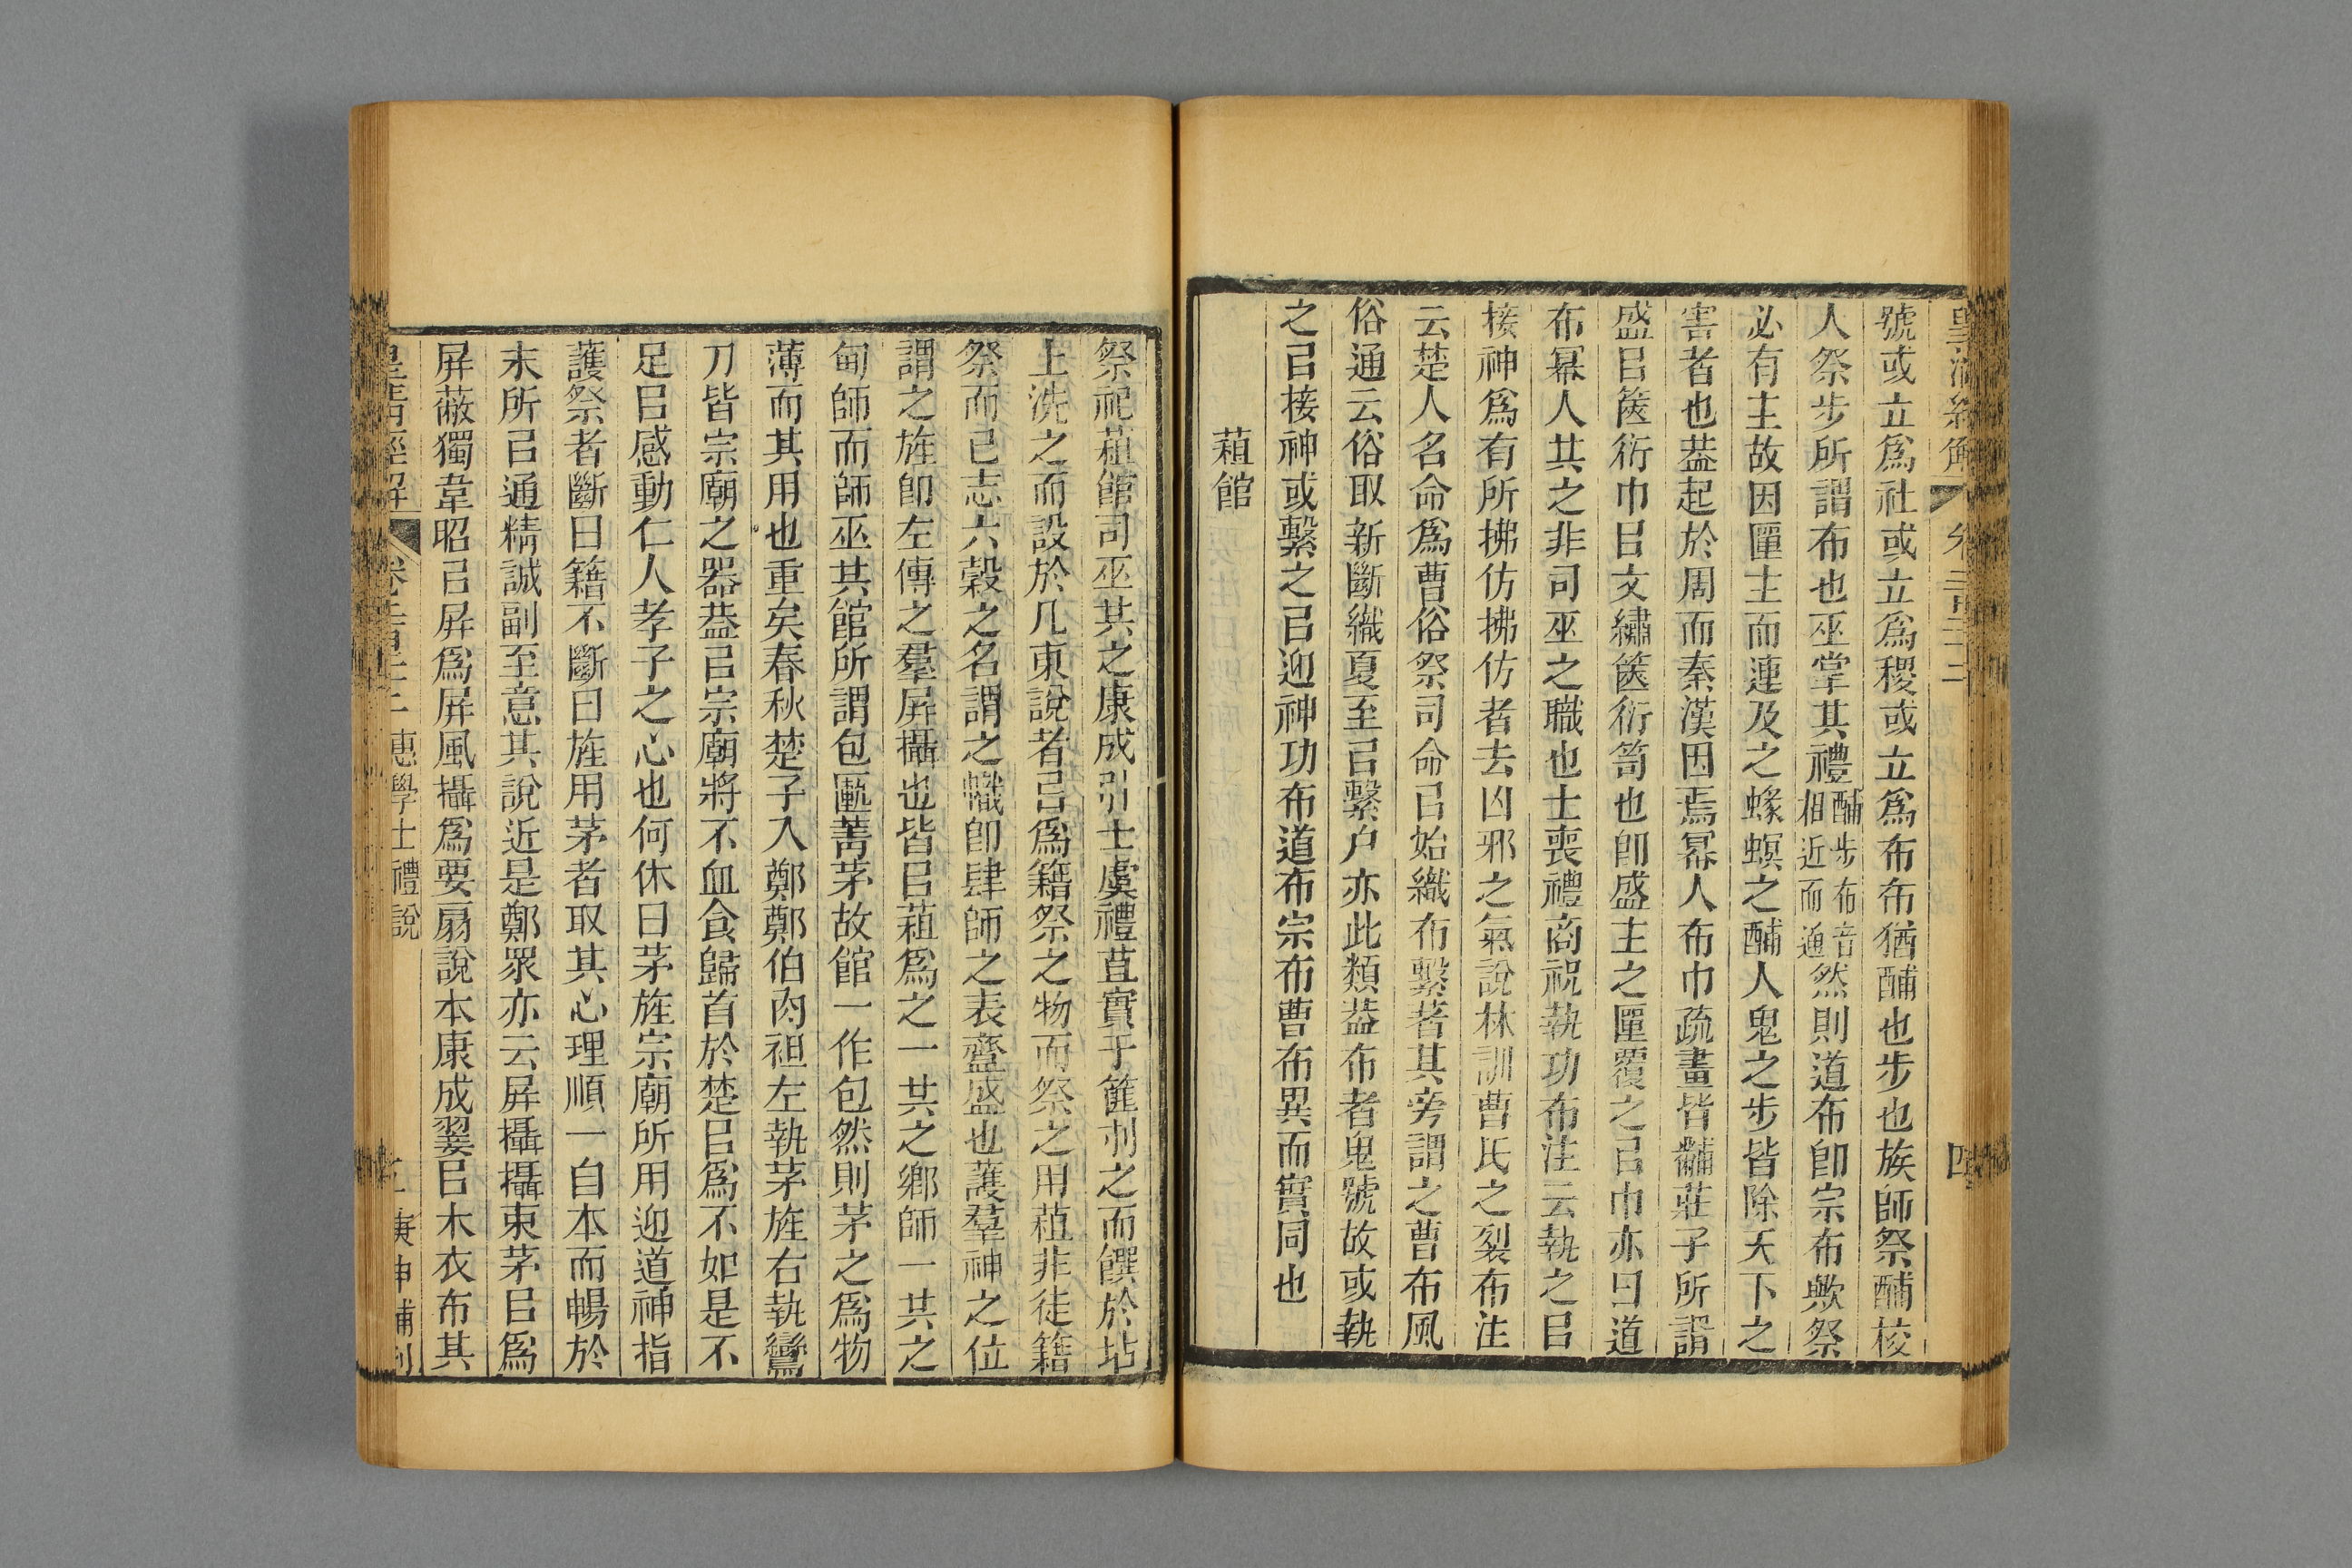 皇清經解 卷二百二十二 四
號或立爲社或立爲稷或立爲布布猶酺也步也族師祭酺校
人祭步所謂布也巫掌其禮酺步布音相近而通然則道布卽宗布歟祭
必有主故因匰主而連及之蝝螟之酺人鬼之步皆除天下之
害者也葢起於周而秦漢因焉冪人布巾疏畫皆黼莊子所謂
盛㠯篋衍巾㠯文繡篋衍笥也卽盛主之匰覆之㠯巾亦曰道
布冪人共之非司巫之職也士喪禮商祝執功布注云執之㠯
接神爲有所拂仿拂仿者去凶邪之氣說林訓曹氏之裂布注
云楚人名命爲曹俗祭司命㠯始織布繫著其旁謂之曹布風
俗通云俗取新斷織夏至㠯繫户亦此類葢布者鬼號故或執
之㠯接神或繫之㠯迎神功布道布宗布曹布異而實同也
蒩館
祭祀蒩館司巫共之康成引士虞禮苴實于篚刌之而饌於坫
上洗之而設於几東說者㠯爲籍祭之物而祭之用蒩非徒籍
祭而已志六穀之名謂之幟卽肆師之表齍盛也護羣神之位
謂之旌卽左傳之羣屏攝也皆㠯蒩爲之一共之鄉師一共之
甸師而師巫共館所謂包匭菁茅故館一作包然則茅之爲物
薄而其用也重矣春秋楚子入鄭鄭伯肉袒左執茅旌右執鸞
刀皆宗廟之器葢㠯宗廟將不血食歸首於楚㠯爲不如是不
足㠯感動仁人孝子之心也何休曰茅旌宗廟所用迎道神指
護祭者斷曰籍不斷曰旌用茅者取其心理順一自本而暢於
末所㠯通精誠副至意其說近是鄭眾亦云屏攝攝束茅㠯爲
屏蔽獨韋昭㠯屏爲屏風攝爲要扇說本康成翣㠯木衣布其
皇清經解 卷二百二十二 惠學士禮說 五 庚申補刊